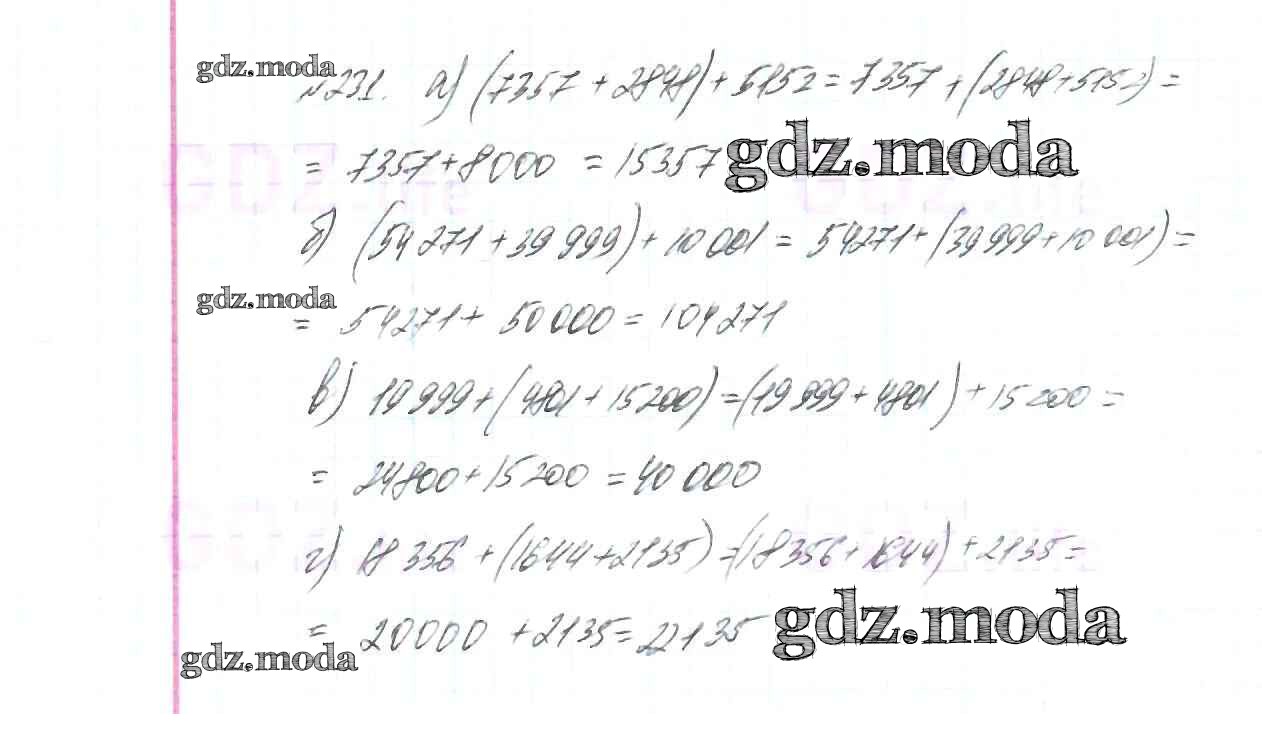 gdz.moda
№231. а) (7357 + 2848) + 5152 = 7357 + (2848 + 5152) =
= 7357 + 8000 = 15357 gdz.moda
б) (54 271 + 39 999) + 10 001 = 54271 + (39 999 + 10 001) =
gdz.moda
= 54271 + 50 000 = 104271
в) 19 999 + (4801 + 15 200) = (19 999 + 4801) + 15 200 =
= 24800 + 15 200 = 40 000
г) 18 356 + (1644 + 2135) = (18 356 + 1644) + 2135 =
= 20000 + 2135 = 22135 gdz.moda
gdz.moda